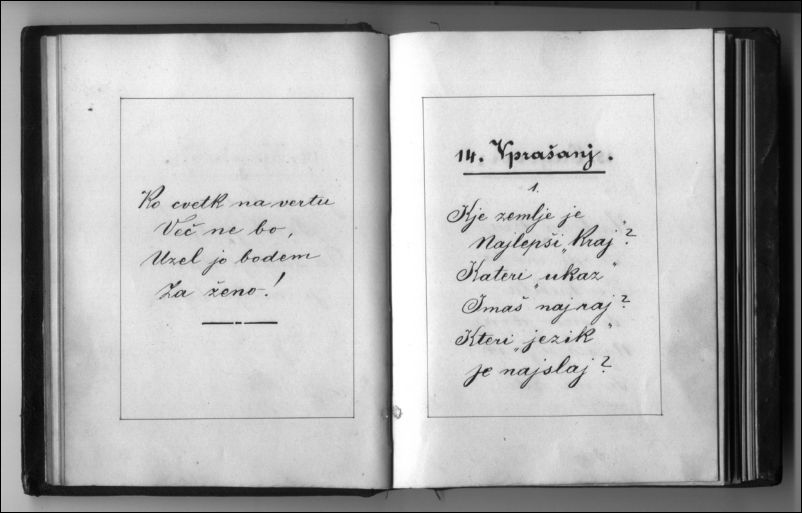 Ko cvetk na vertu
Več ne bo,
Uzel jo bodem
Za ženo!
14. Vprašanj.
1.
Kje zemlje je
Najlepši „Kraj"?
Kateri „ukaz"
Imaš najraj?
Kteri „jezik"
je najslaj?